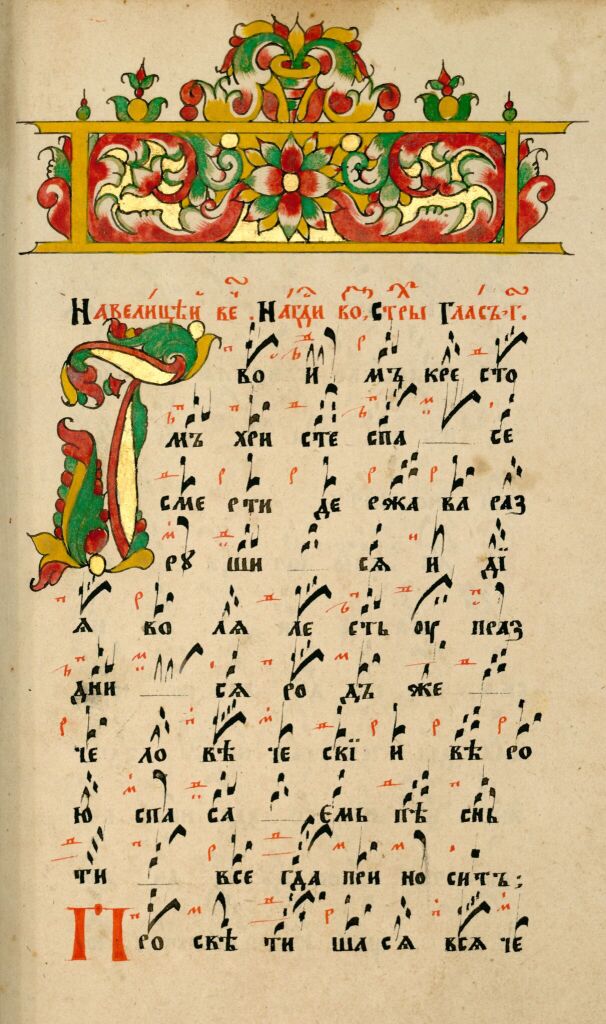 НАВЕЛИЦѢЙ ВЕ҃. НАГДИ ВО, СТРЫ ГЛАСЪ·Г·
Т ВО И МЪ КРЕ СТО
МЪ ХРИ СТЕ СПА СЕ
СМЕ РТИ ДЕ РЖА ВА РАЗ
РУ ШИ СѦ И ДЇ
Ѧ ВО ЛѦ ЛЕ СТЬ ОУ ПРАЗ
ДНИ СѦ РО ДЪ ЖЕ
ЧЕ ЛО ВѢ ЧЕ СКЇИ И ВѢ РО
Ю СПА СА ЕМЬ ПѢ СНЬ
ТИ ВСЕ ГДА ПРИ НО СИТЪ:
П РО СВѢ ТИ ША СѦ ВСѦ ЧЕ